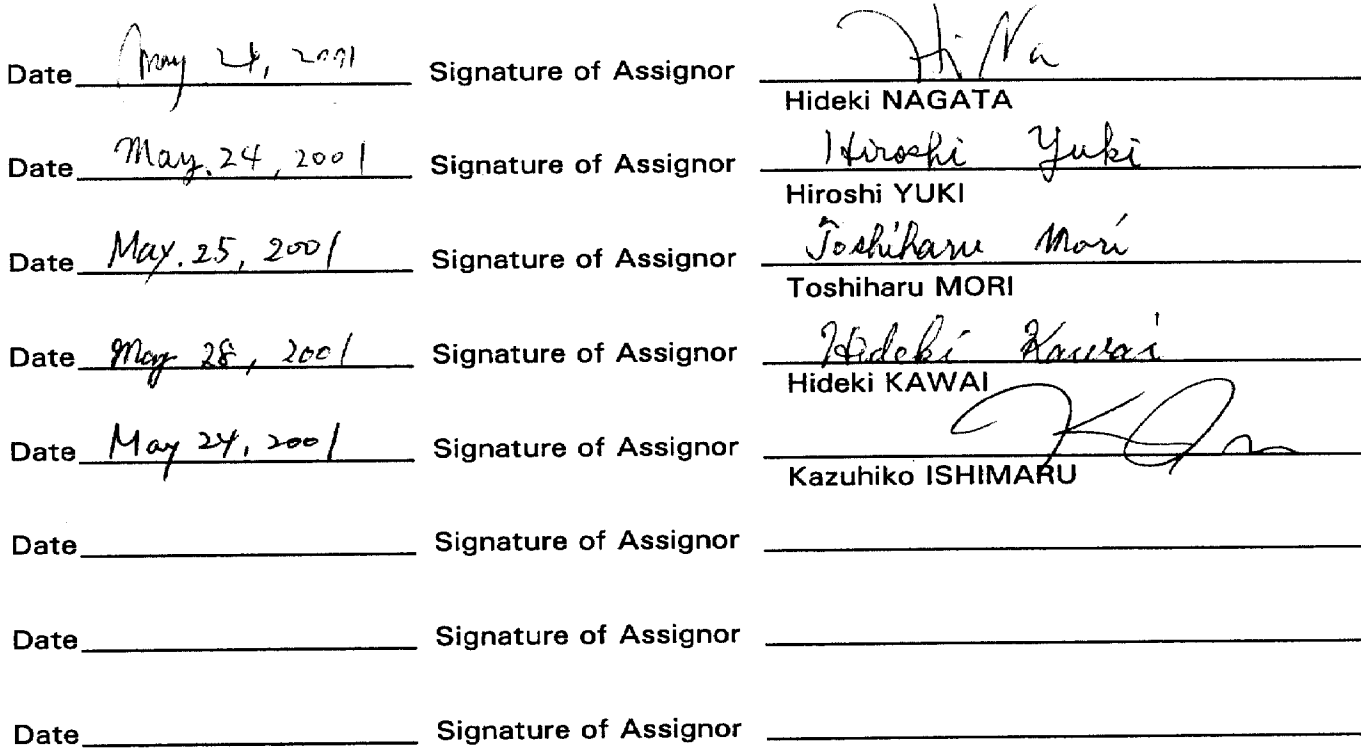 Date May 24, 2001 Signature of Assignor Hi Na
Hideki NAGATA
Date May. 24, 2001 Signature of Assignor Hiroshi Yuki
Hiroshi YUKI
Date May. 25, 2001 Signature of Assignor Toshiharu Mori
Toshiharu MORI
Date May 28, 2001 Signature of Assignor Hideki Kawai
Hideki KAWAI
Date May 24, 2001 Signature of Assignor
Kazuhiko ISHIMARU
Date Signature of Assignor
Date Signature of Assignor
Date Signature of Assignor